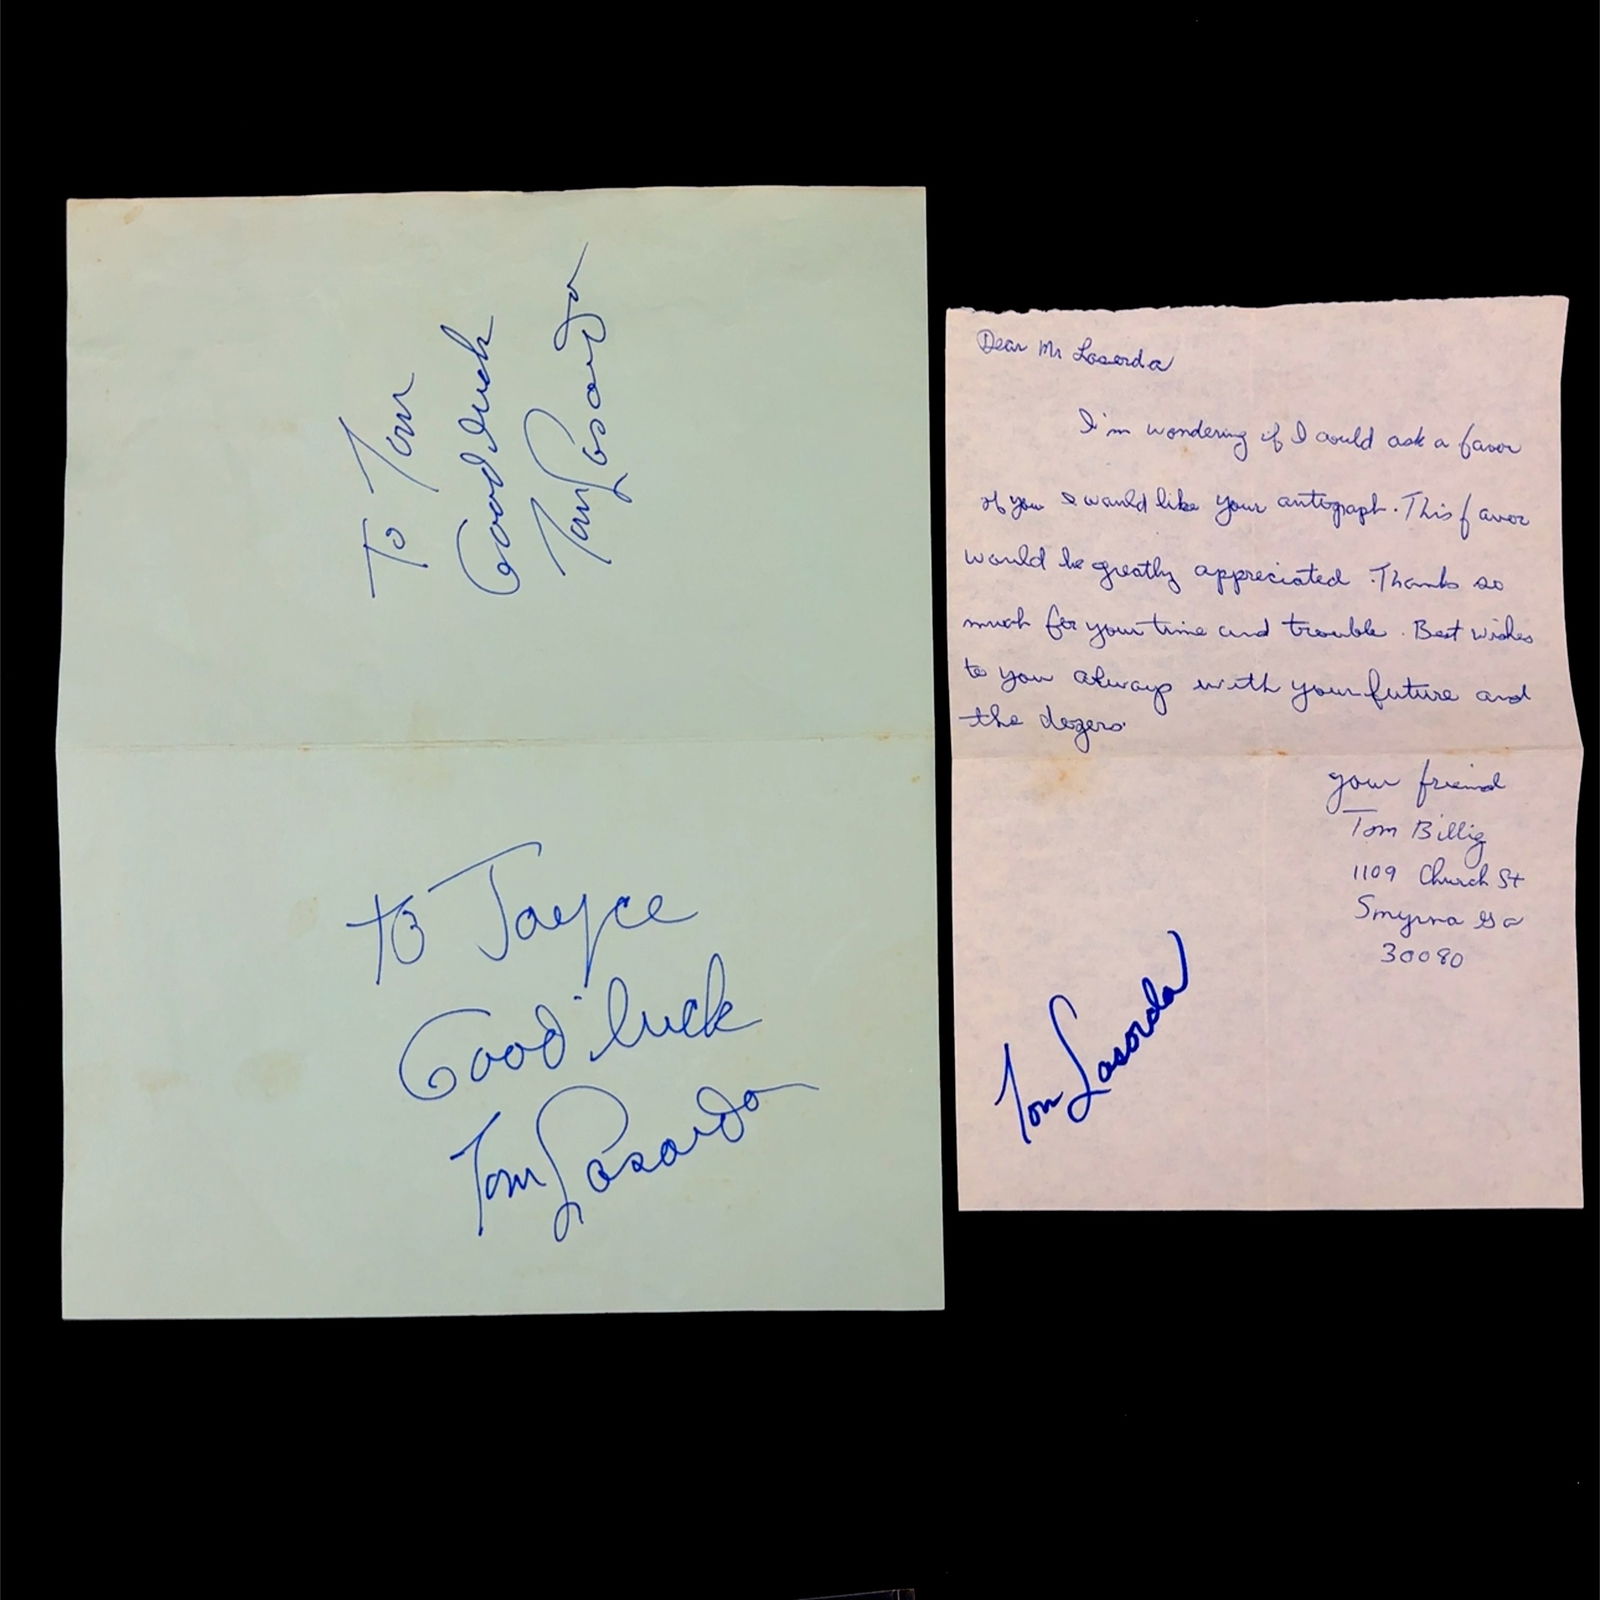 To Tom
Good luck
Tom Lasorda
to Jayce
Good luck
Tom Lasorda
Dear Mr Lasorda
I'm wondering if I could ask a favor
of you I would like your autograph. This favor
would be greatly appreciated. Thanks so
much for your time and trouble. Best wishes
to you always with your future and
the dogers.
your friend
Tom Billig
1109 Church St
Smyrna Ga
30080
Tom Lasorda